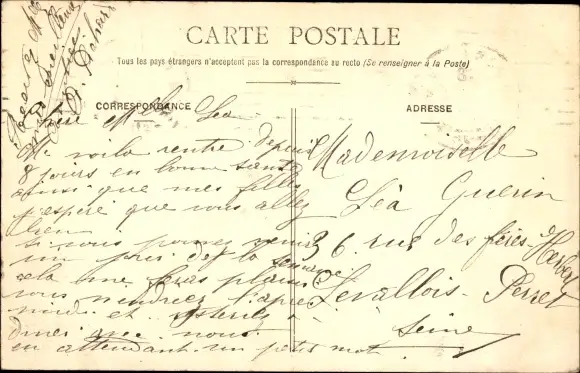 CARTE POSTALE
Tous les pays étrangers n'acceptent pas la correspondance au recto (Se renseigner à la Poste)
CORRESPONDANCE
ADRESSE
Mlle Léa
Me voila rentré depuis
8 jours en bonne santé
ainsi que mes filles
j'espère que vous allez
bien
si vous pouvez venir
un jour de la semaine
cela me fera plaisir
vous viendrez l'après
midi et resterez à
diner avec nous
en attendant un petit mot
Mademoiselle
Léa Guerin
36 rue des frères Herbert
Levallois-Perret
Seine